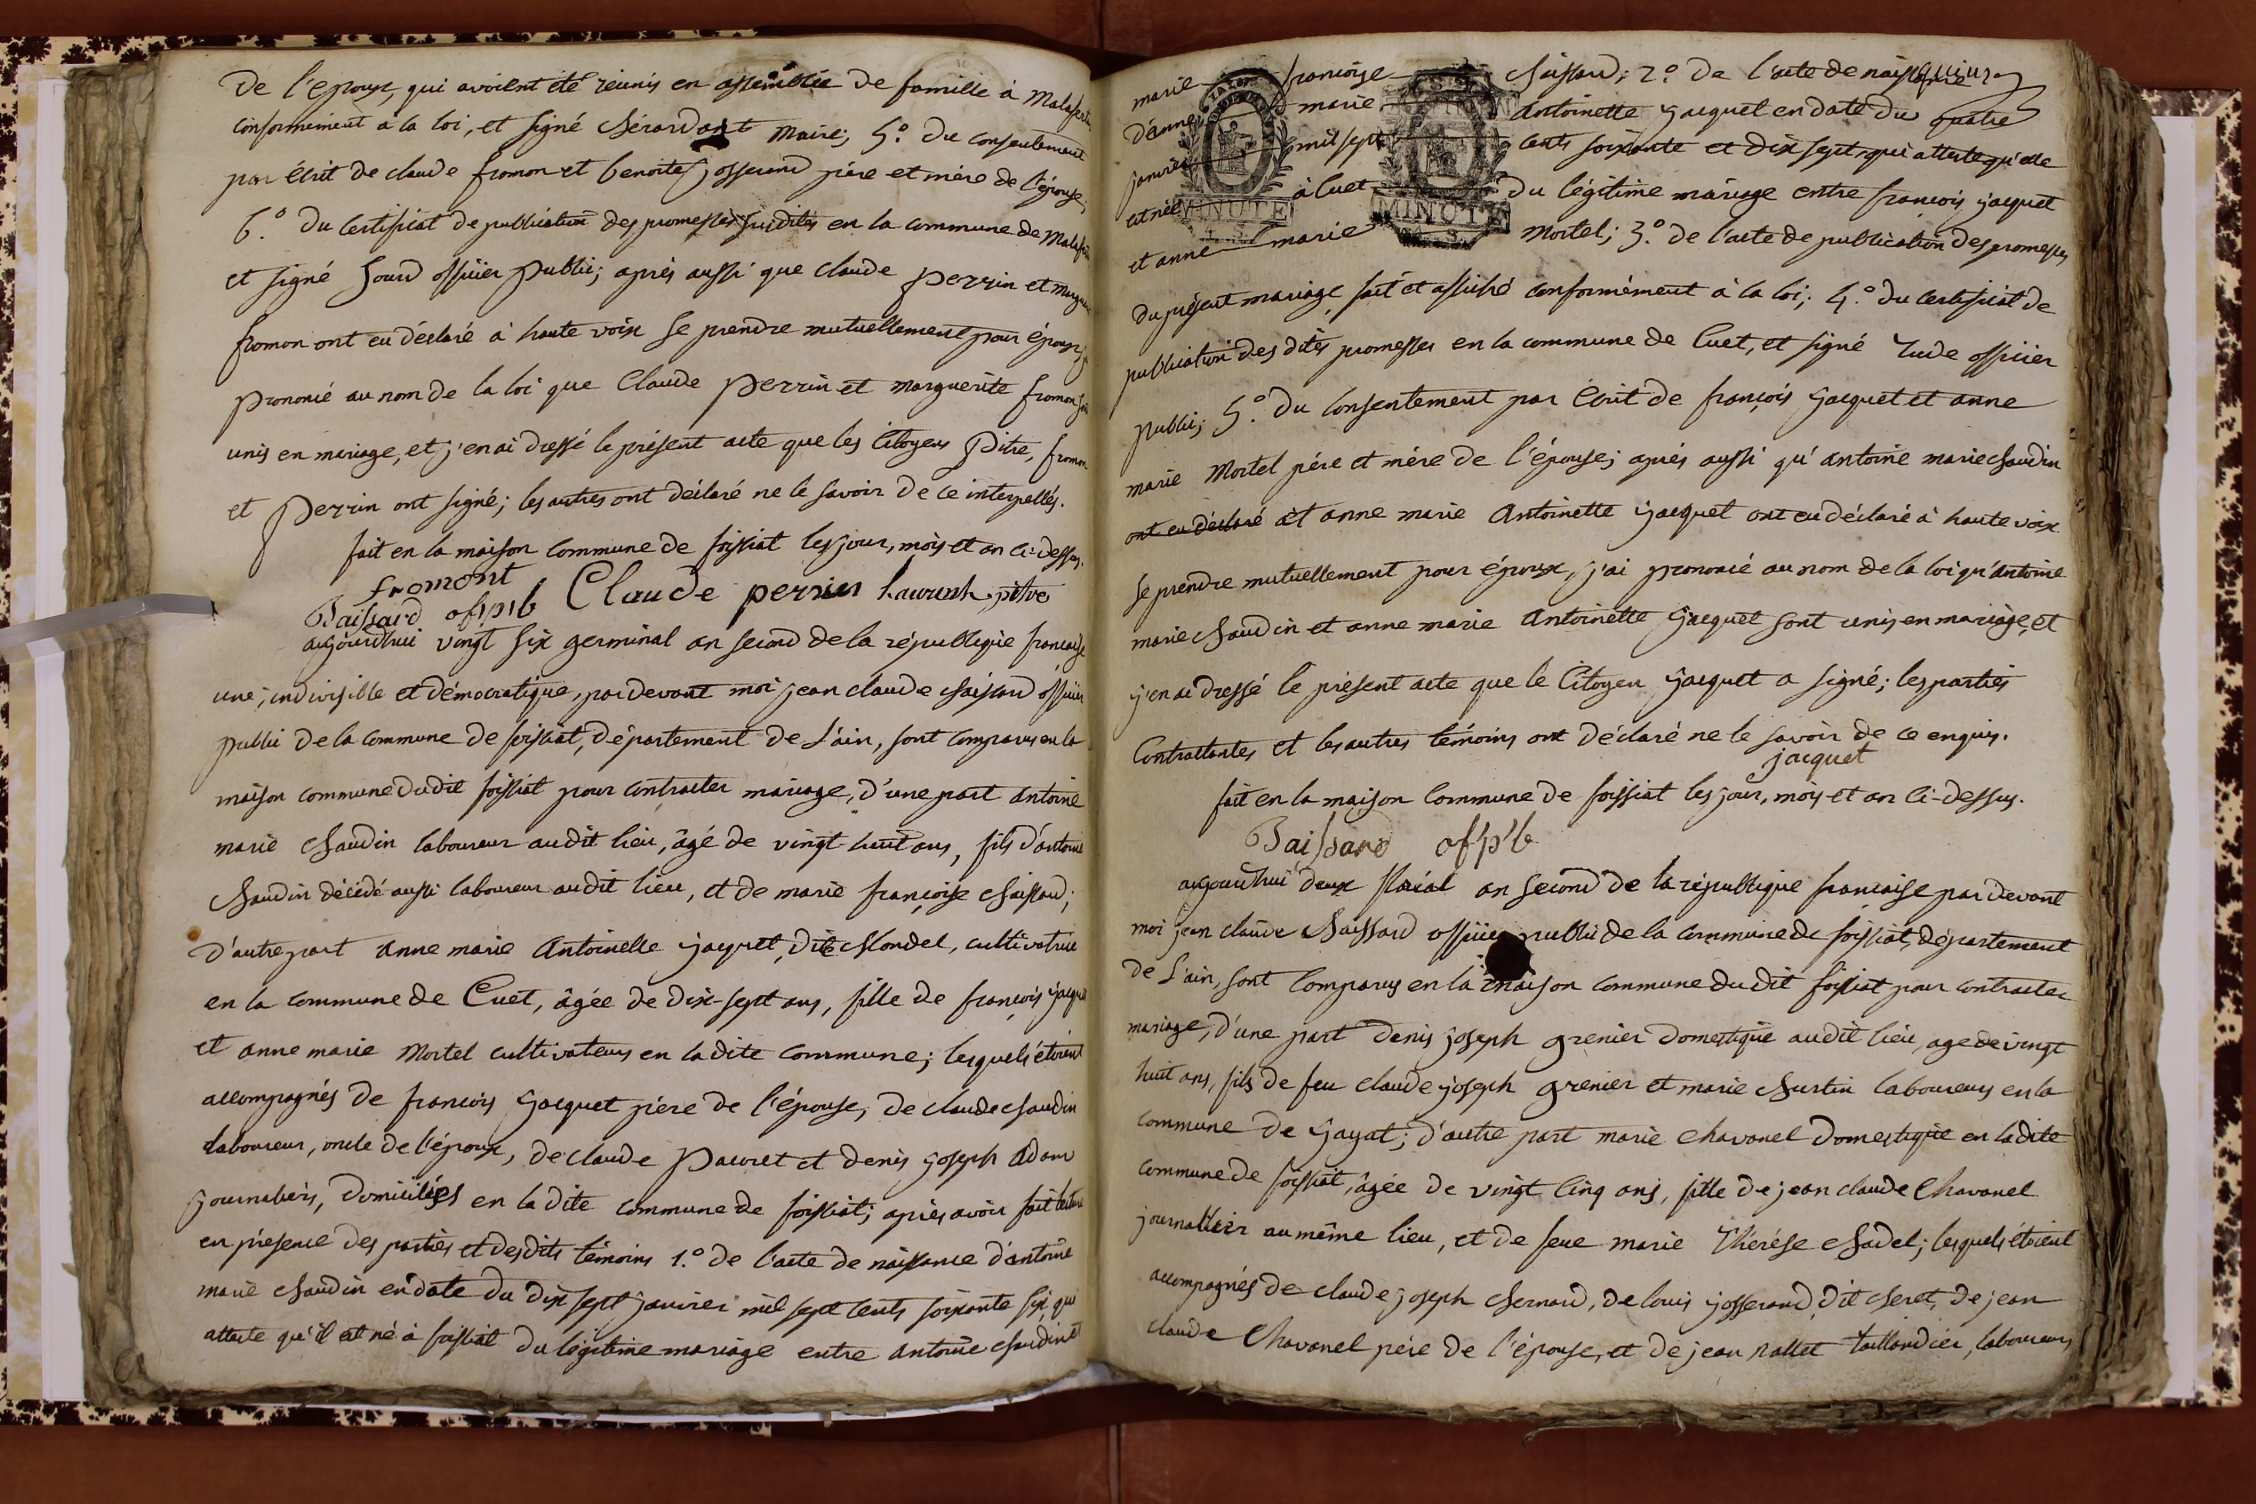 de l'époux, qui avoient été réunis en assemblée de famille à
conformément à la loi, et signé maire; 5.º du consentement
par écrit de claude fromon et benoite josserand père et mère de l'épouse;
6.º du certificat de publication des promesses susdites en la commune de
et signé officier public; après aussi que claude perrin et
fromon ont eu déclaré à haute voix se prendre mutuellement pour époux, j'ai
prononcé au nom de la loi que Claude perrin et marguerite fromon sont
unis en mariage, et j'en ai dressé le présent acte que les Citoyens pitre, fromon
et perrin ont signé; les autres ont déclaré ne le savoir de ce interpellés.
fait en la maison commune de foissiat les jour, mois et an ci-dessus.
fromont
Claude perrin laurent pitre
off pb
aujourd'hui vingt six germinal an second de la république françoise
une, indivisible et démocratique, par devant moi jean claude officier
public de la commune de foissiat, département de l'ain, sont comparus en la
maison commune dudit foissiat pour contracter mariage, d'une part antoine
marie Chaudin laboureur audit lieu, âgé de vingt-huit ans, fils d'antoine
Chaudin décédé aussi laboureur audit lieu, et de marie françoise
d'autre part anne marie Antoinette jacquet, dite cultivatrice
en la commune de Cuet, âgée de dix-sept ans, fille de françois jacquet
et anne marie Mortel cultivateurs en la dite commune; lesquels étoient
accompagnés de françois jacquet père de l'épouse, de claude Chaudin
laboureur, oncle de l'époux, de claude et denis joseph Adam
journaliers, domiciliés en la dite commune de foissiat; après avoir fait lecture
en présence des parties et desdits témoins 1.º de l'acte de naissance d'antoine
marie Chaudin en date du dix sept janvier mil sept cents soixante six, qui
atteste qu'il est né à foissiat du légitime mariage entre antoine Chaudin et
marie françoise 2.º de l'acte de naissance
d'anne marie Antoinette jacquet en date du quatre
janvier mil sept cents soixante et dix sept, qui atteste qu'elle
est née à Cuet du légitime mariage entre françois jacquet
et anne marie Mortel; 3.º de l'acte de publication des promesses
du présent mariage, fait et affiché conformément à la loi; 4.º du certificat de
publication des dites promesses en la commune de Cuet, et signé officier
public; 5.º du consentement par écrit de françois jacquet et anne
marie Mortel père et mère de l'épouse; après aussi qu'antoine marie Chaudin
ont eu déclaré et anne marie Antoinette jacquet ont eu déclaré à haute voix
se prendre mutuellement pour époux, j'ai prononcé au nom de la loi qu'antoine
marie Chaudin et anne marie Antoinette jacquet sont unis en mariage, et
j'en ai dressé le présent acte que le Citoyen jacquet a signé; les parties
Contractantes et les autres témoins ont déclaré ne le savoir de ce enquis.
jacquet
fait en la maison commune de foissiat les jour, mois et an ci-dessus.
off pb
aujourd'hui deux floréal an second de la république françoise par devant
moi jean claude officier public de la commune de foissiat, département
de l'ain, sont comparus en la maison commune du dit foissiat pour contracter
mariage, d'une part denis joseph grenier domestique audit lieu, age de vingt
huit ans, fils de feu claude joseph grenier et marie laboureurs en la
commune de jayat; d'autre part marie Chavanel domestique en la dite
commune de foissiat, âgée de vingt cinq ans, fille de jean claude Chavanel
journallier au même lieu, et de feue marie Thérèse lesquels étoient
accompagnés de claude joseph de louis josserand, dit de jean
claude Chavanel père de l'épouse, et de jean taillandier, laboureurs
MINUTE
MINUTE